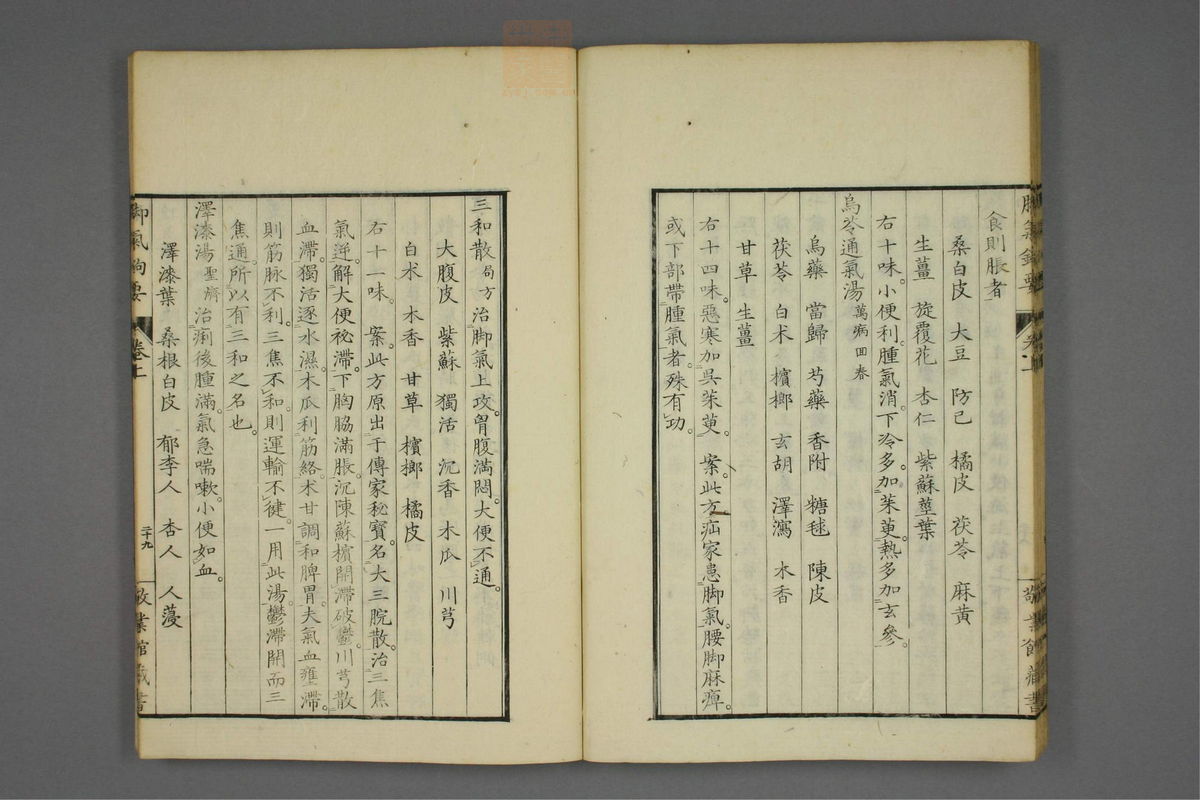 食則脹者
桑白皮 大豆 防已 橘皮 茯苓 麻黃
生薑 旋覆花 杏仁 紫蘇莖葉
右十味。小便利。腫氣消。下冷多。加茱萸。熱多加玄參。
烏苓通氣湯 萬病回春
烏藥 當歸 芍藥 香附 糖毬 陳皮
茯苓 白朮 檳榔 玄胡 澤瀉 木香
甘草 生薑
右十四味。惡寒加吳茱萸。 案。此方疝家患脚氣。腰脚麻痺。
或下部帶腫氣者。殊有功。
三和散 局方 治脚氣上攻。胷腹満悶。大便不通。
大腹皮 紫蘇 獨活 沉香 木瓜 川芎
白朮 木香 甘草 檳榔 橘皮
右十一味。 案。此方原出于傳家秘寶。名大三脘散。治三焦
氣逆。解大便秘滯。下胸脇滿脹。沉陳蘇檳開滯破鬱。川芎散
血滯。獨活逐水濕。木瓜利筋絡。朮甘調和脾胃。夫氣血壅滯。
則筋脉不利。三焦不和。則運輸不健。一用此湯。鬱滯開而三
焦通。所以有三和之名也。
澤漆湯 聖濟 治痢後腫滿。氣急喘嗽。小便如血。
澤漆葉 桑根白皮 郁李人 杏人 人蓡
脚氣鉤要 卷上 二十九 敬業館藏書